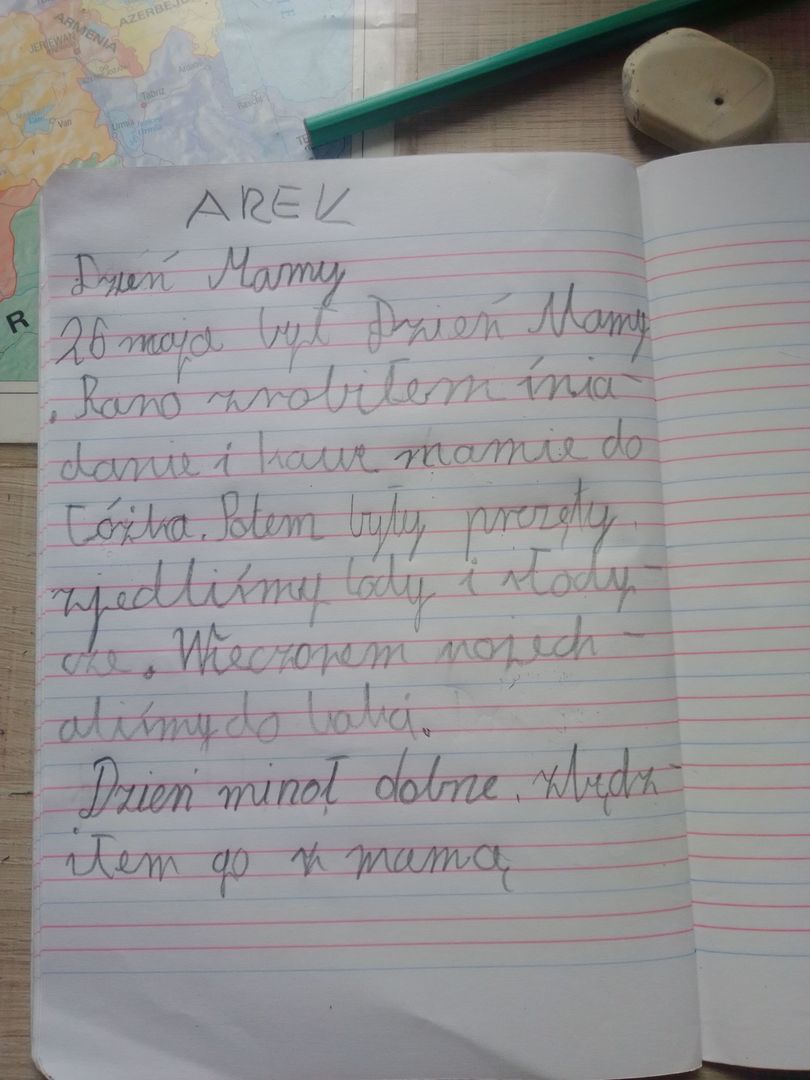 ARMENIA
AZERBEJD
JEREWAN
Tabriz
Van
Urmia
TE
R
AREK
Dzień Mamy
26 maja był Dzień Mamy
. Rano zrobiłem śnia-
danie i kawe mamie do
łóżka. Potem były prezęty.
zjedliśmy lody i słody-
cze. Wieczorem pojech-
aliśmy do babci.
Dzień minoł dobrze. zbędz-
iłem go z mamą